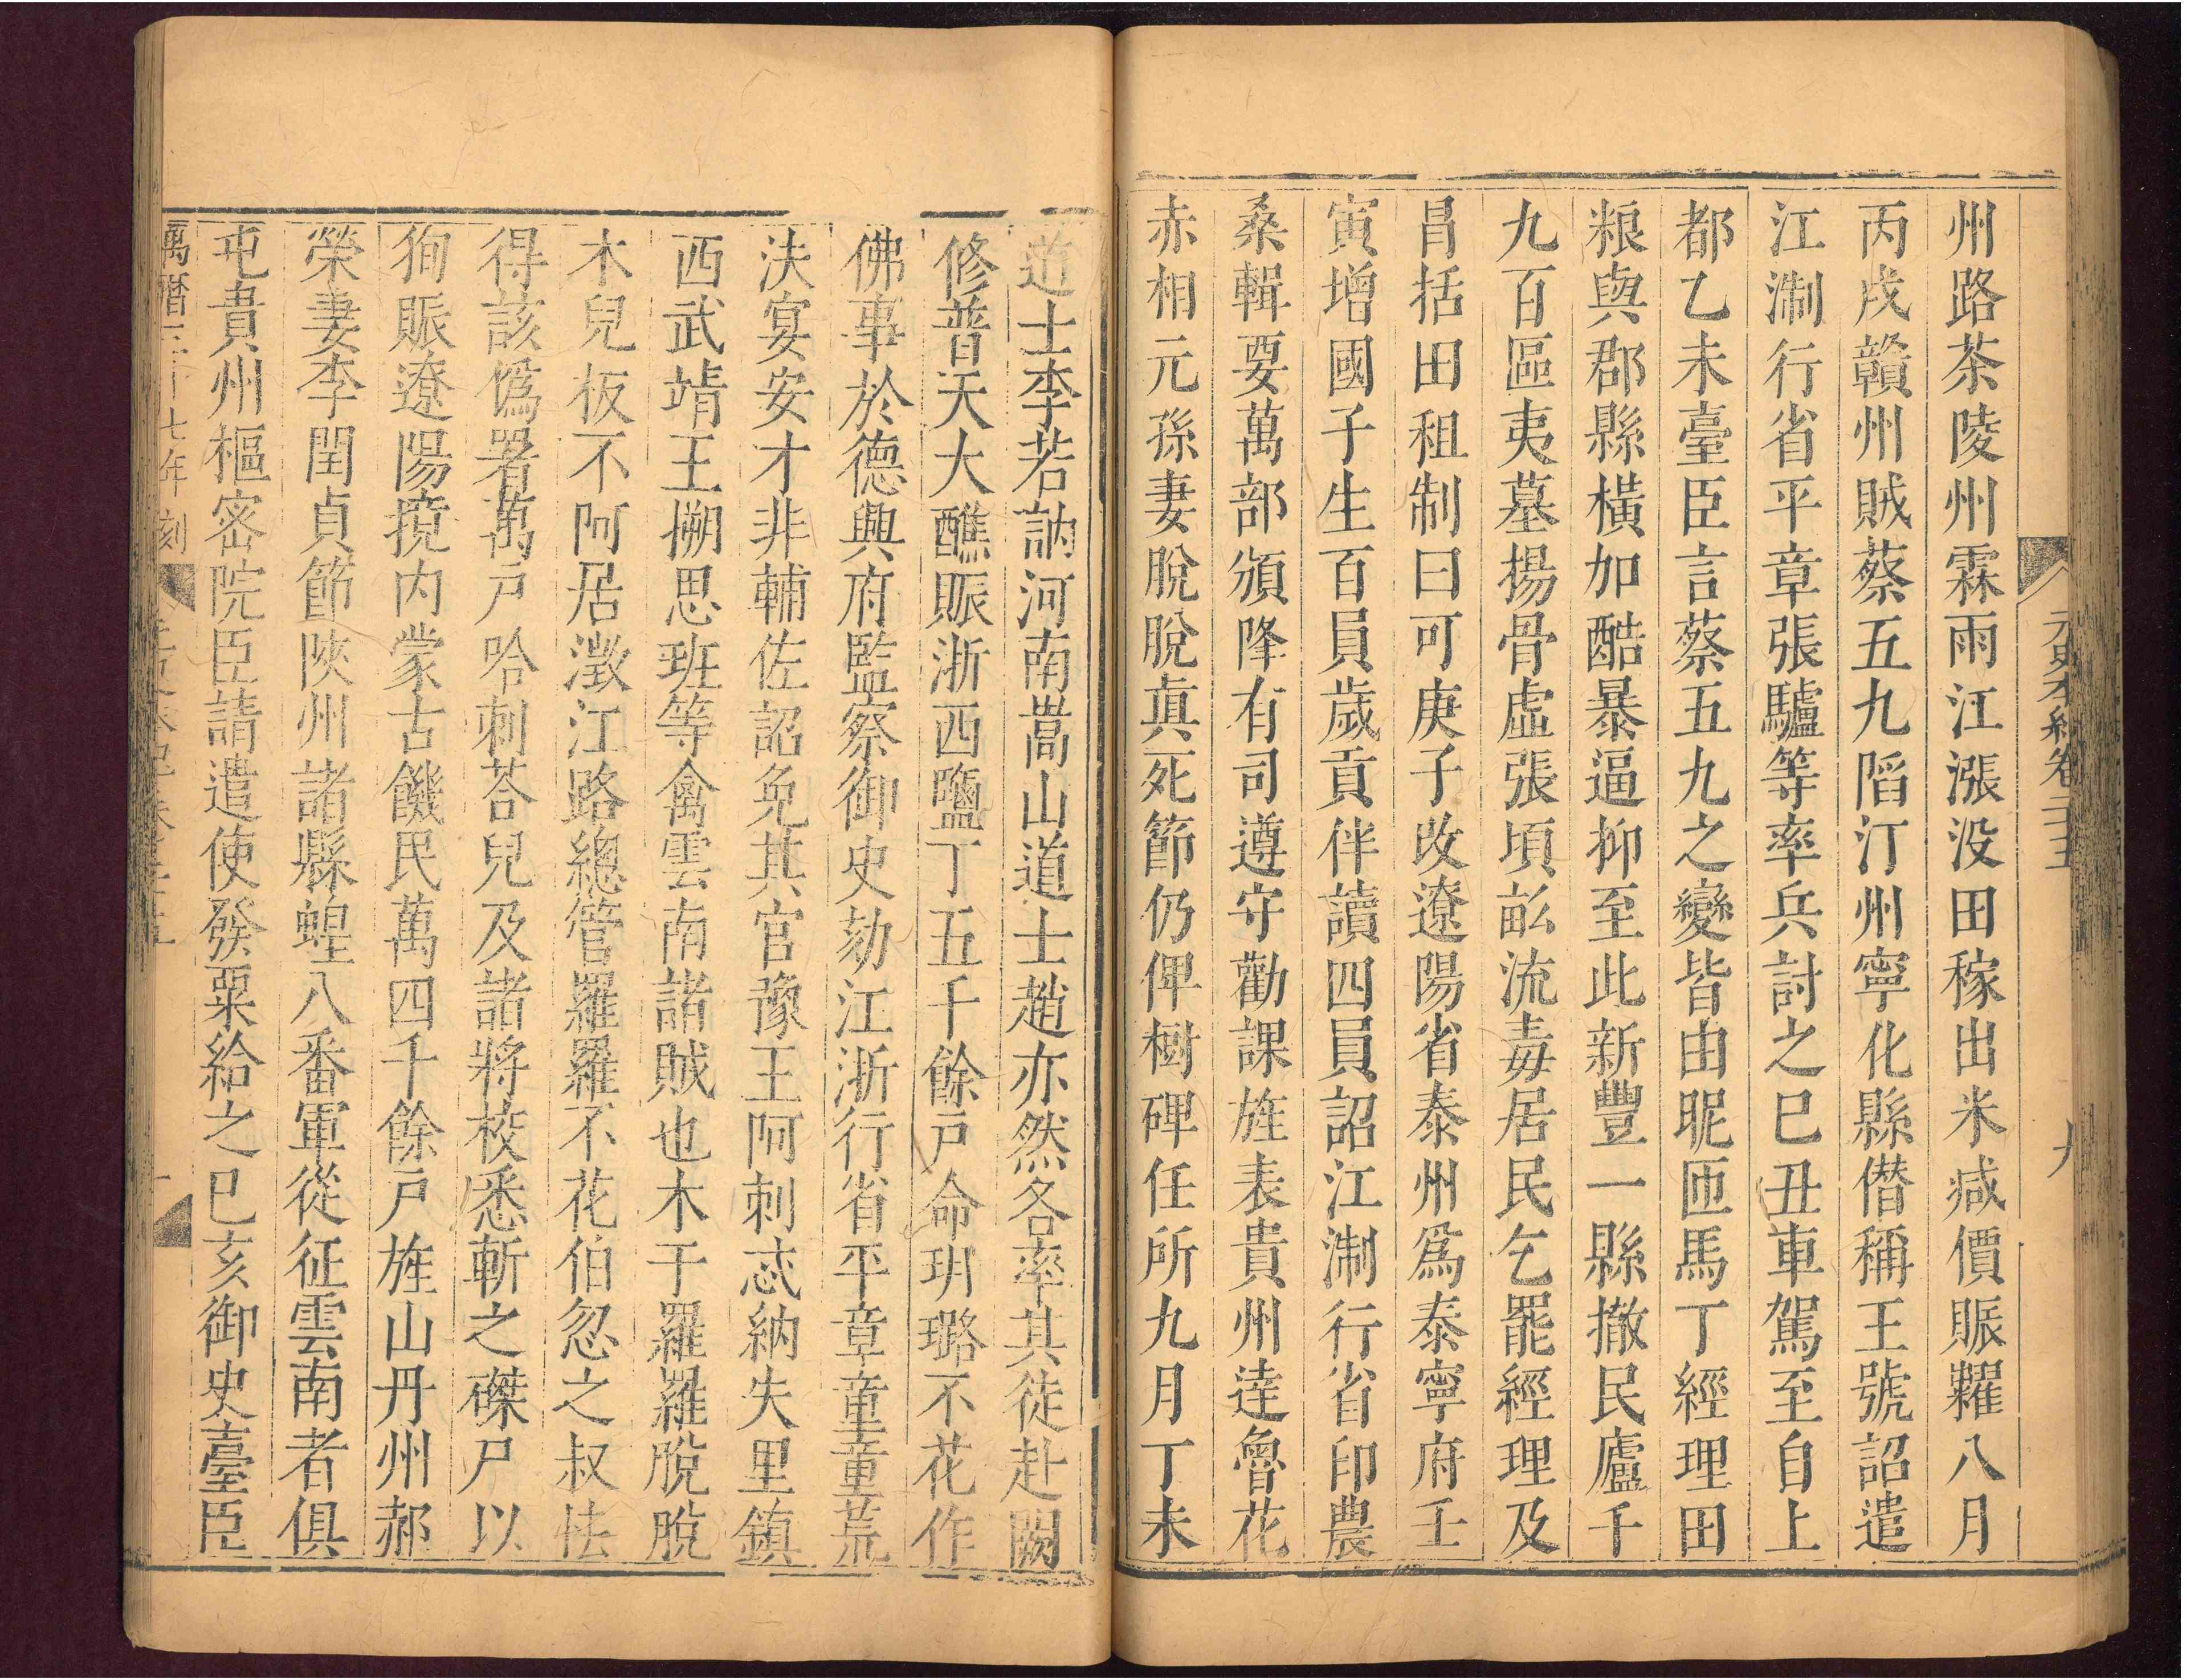 元史本紀卷二十五
九
州路茶陵州霖雨江漲没田稼出米减價賑糶八月
丙戌贛州賊蔡五九陷汀州寧化縣僣稱王號詔遣
江淛行省平章張驢等率兵討之巳丑車駕至自上
都乙未臺臣言蔡五九之變皆由昵匝馬丁經理田
粮與郡縣橫加酷暴逼抑至此新豐一縣撤民廬千
九百區夷墓揚骨虛張頃畆流毒居民乞罷經理及
昌括田租制曰可庚子改遼陽省泰州爲泰寧府壬
寅增國子生百員歲貢伴讀四員詔江淛行省印農
桑輯要萬部頒降有司遵守勸課旌表貴州達魯花
赤相元孫妻脫脫眞死節仍俾樹碑任所九月丁未
道士李若訥河南嵩山道士趙亦然各率其徒赴闕
修普天大醮賑浙西鹽丁五千餘戸命玥璐不花作
佛事於德興府監察御史劾江浙行省平章童童荒
泆宴安才非輔佐詔免其官豫王阿刺忒納失里鎮
西武靖王搠思班等禽雲南諸賊也木干羅羅脫脫
木兒板不阿居澂江路總管羅羅不花伯忽之叔怯
得該僞署萬戸哈刺荅兒及諸將校悉斬之磔尸以
狥賑遼陽境内蒙古饑民萬四千餘戸旌山丹州郝
榮妻李閏貞節陝州諸縣蝗八番軍從征雲南者俱
屯貴州樞密院臣請遣使發粟給之巳亥御史臺臣
萬曆二十七年刻